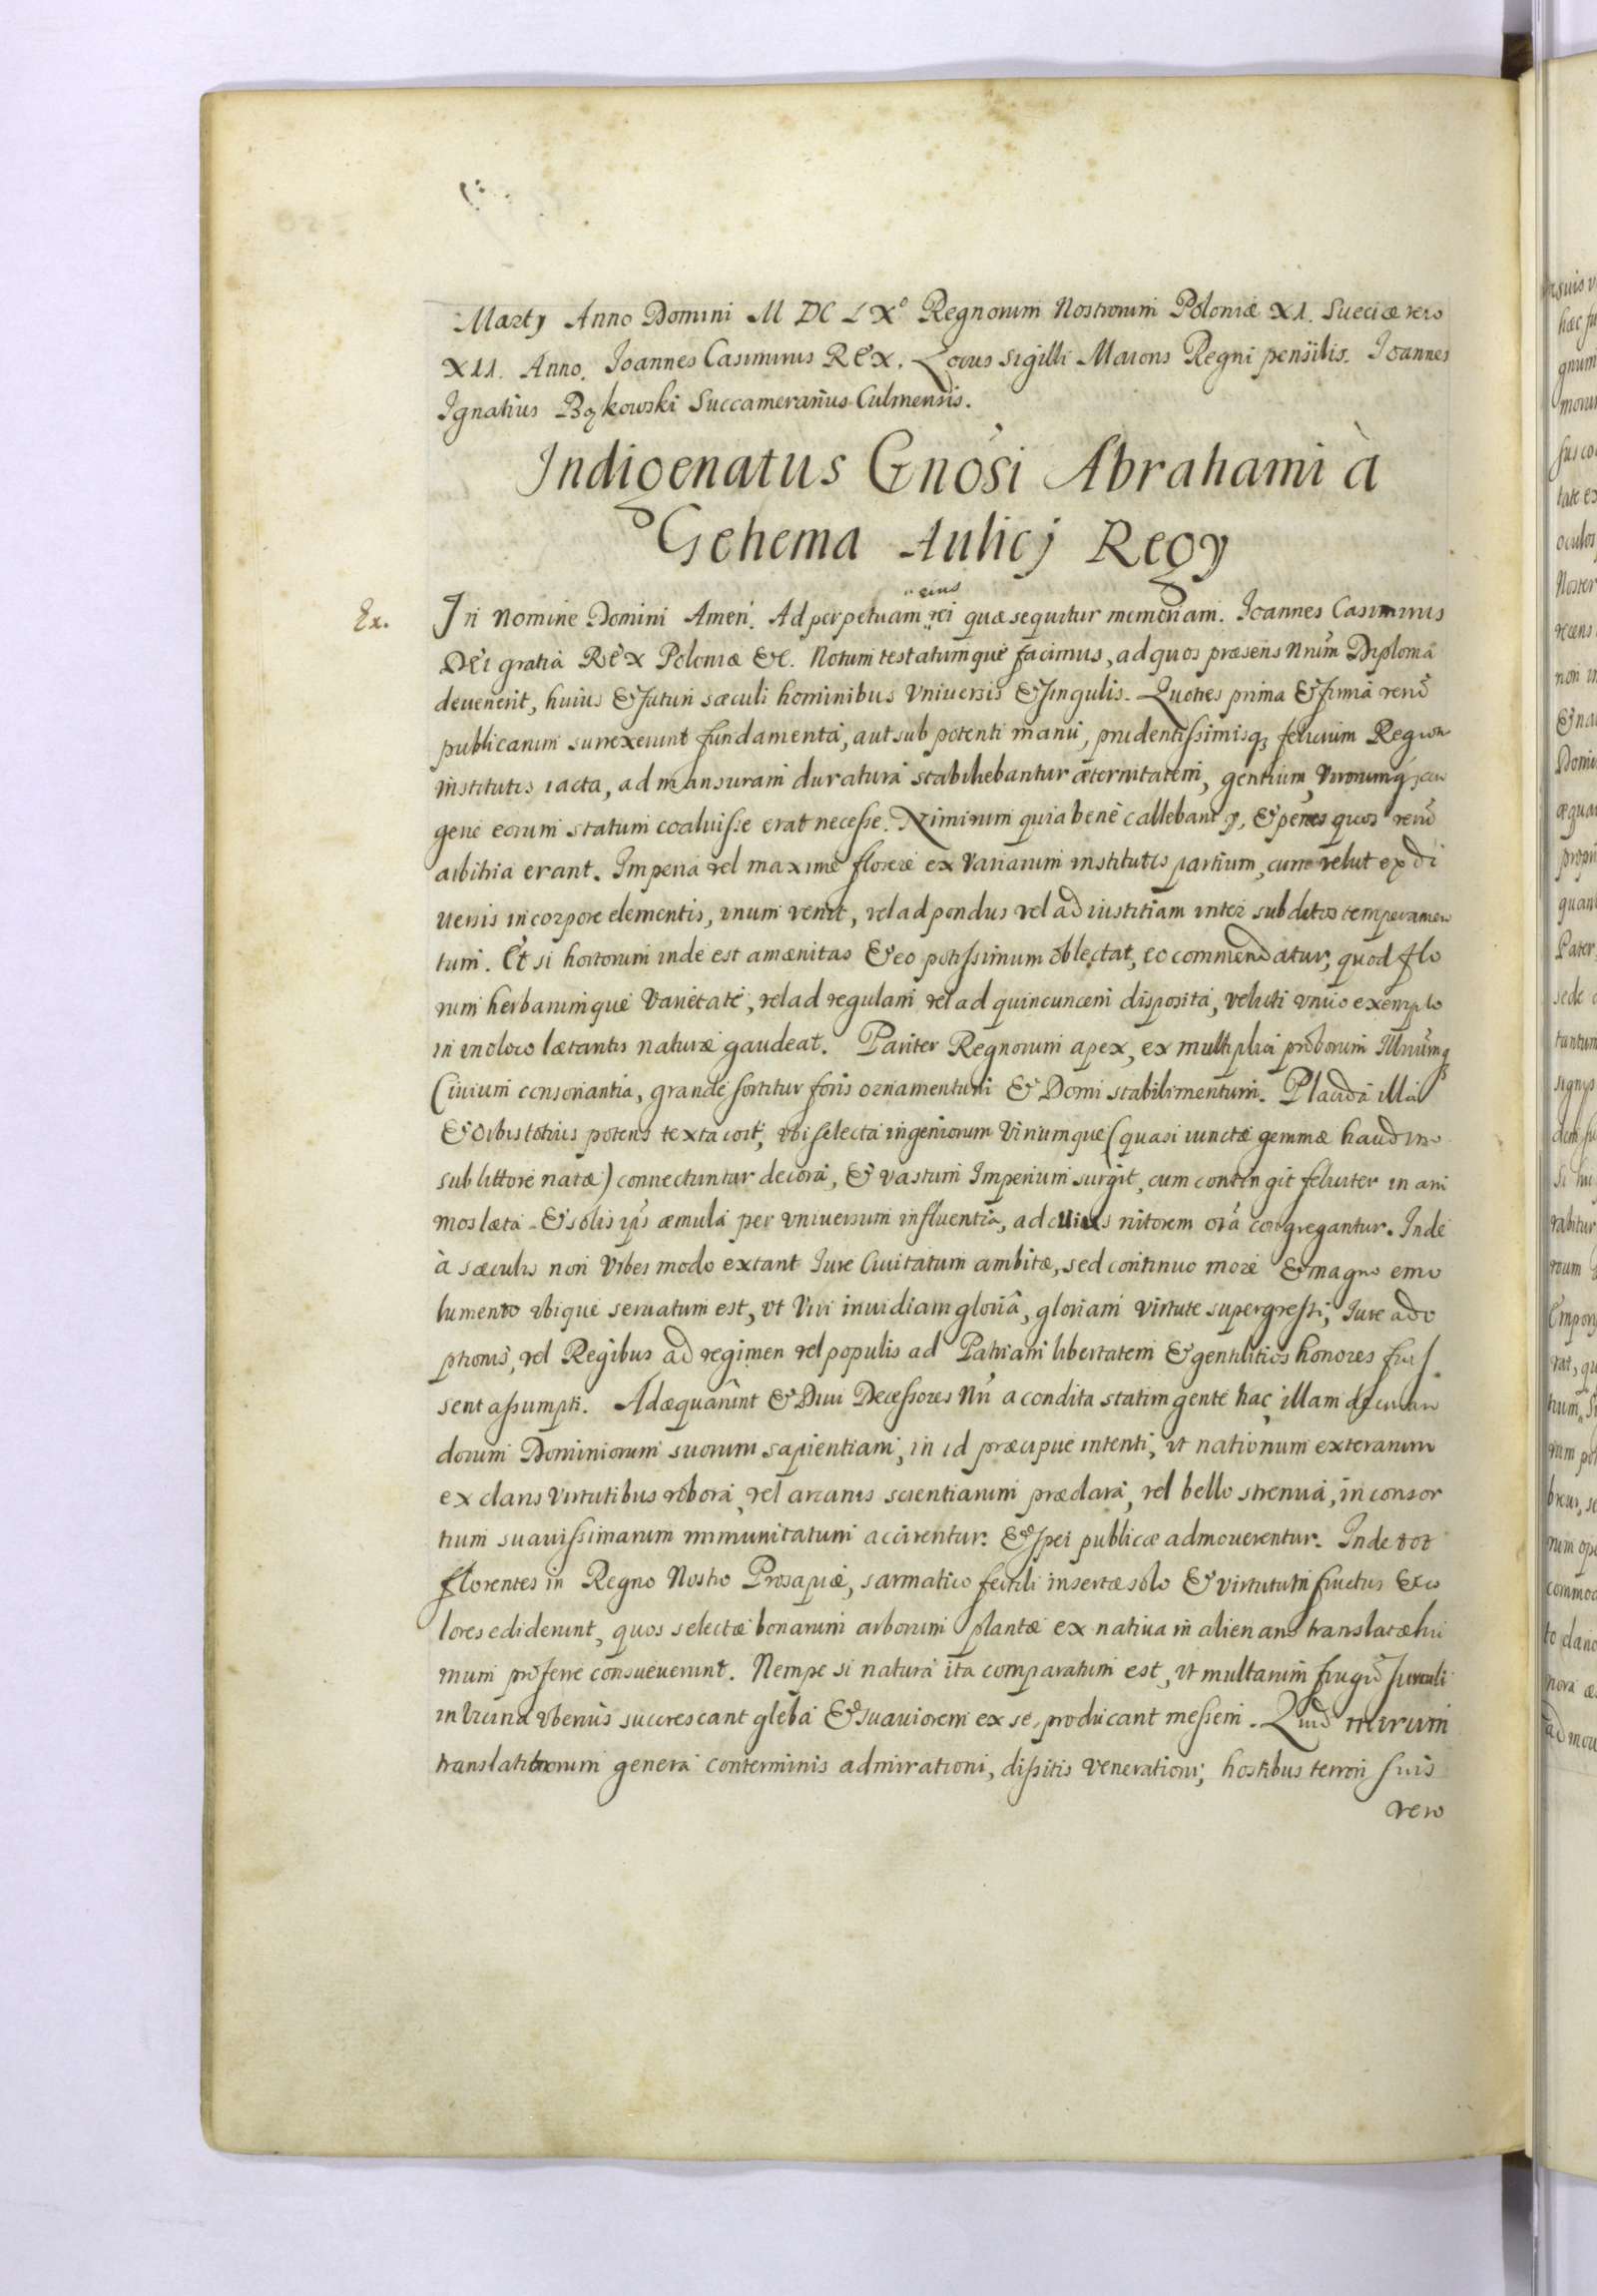 Martÿ Anno Domini M DC LX° Regnorum Nostrorum Poloniæ XI. Sueciæ vero
XII. Anno. Ioannes Casimirus REX. Locus Sigilli Maioris Regni pensilis. Ioannes
Ignatius Bąkowski Succamerarius Culmensis.
Indigenatus Gnosi Abrahami à
Gehema Aulicj Regÿ
eius
Ex. In Nomine Domini Amen. Ad perpetuam rei quæ sequitur memoriam. Ioannes Casimirus
Dei gratia REX Poloniæ &c. Notum testatumque facimus, ad quos præsens Nrum Diploma
deuenerit, huius & futuri sæculi hominibus Vniuersis & singulis. Quoties prima & firma rerū
publicarum surrexerunt fundamenta, aut sub potenti manu, prudentissimisq; felicium Regum
institutis iacta, ad mansuram duratura stabiliebantur æternitatem, gentium, Virorumq;
gene eorum statum coaluisse erat necesse. Nimirum quia benè callebant ÿ, & penes quos rerū
arbitria erant. Imperia vel maximè florere ex Variarum institutis partium, cum velut ex di
uersis in corpore elementis, vnum venit, vel ad pondus vel ad iustitiam inter subditos temperamen
tum. Et si hortorum inde est amænitas & eo potissimum oblectat, eo commendatur, quod flo
rum herbarumque Varietate, vel ad regulam vel ad quincuncem disposita, veluti vnico exemplo
in vno loco lætantis naturæ gaudeat. Pariter Regnorum apex, ex multiplici proborum Illriumq;
Ciuium consonantia, grande sortitur foris ornamentum & Domi stabilimentum. Placida illa
& Orbis totius potens texta coit, vbi selecta ingeniorum Virûmque (quasi iunctæ gemmæ haud vno
sub littore natæ) connectuntur decora, & vastum Imperium surgit, cum contingit feliciter in ani
mos læta & solis ipsius æmula per vniuersum influentia, ad cuius nitorem ora congregantur. Inde
à sæculis non Vrbes modo extant Iure Ciuitatum ambitæ, sed continuo more & magno emo
lumento vbique seruatum est, vt Viri inuidiam gloriâ, gloriam virtute supergressi, Iure ado
ptionis, vel Regibus ad regimen vel populis ad Patriam libertatem & gentilitios honores fuis
sent assumpti. Adæquârunt & Diui Decessores Nri a condita statim gente hac illam
dorum Dominiorum suorum sapientiam, in id præcipue intenti, vt nationum exterarum
ex claris Virtutibus robora, vel arcanis scientiarum præclara, vel bello strenua, in consor
tium suauissimarum immunitatum accirentur. & spei publicæ admouerentur. Inde tot
florentes in Regno Nostro Prosapiæ, sarmatico fertili insertæ solo & virtutum fructus & co
lores ediderunt, quos selectæ bonarum arborum plantæ ex natiua in alienam translatæ hu
mum proferre consueuerunt. Nempe si natura ita comparatum est, vt multarum frugū surculi
in Vicina vberius succrescant gleba & suauiorem ex se producant messem. Quid mirum
translatitiorum genera conterminis admirationi, dissitis venerationi, hostibus terrori suis
vero